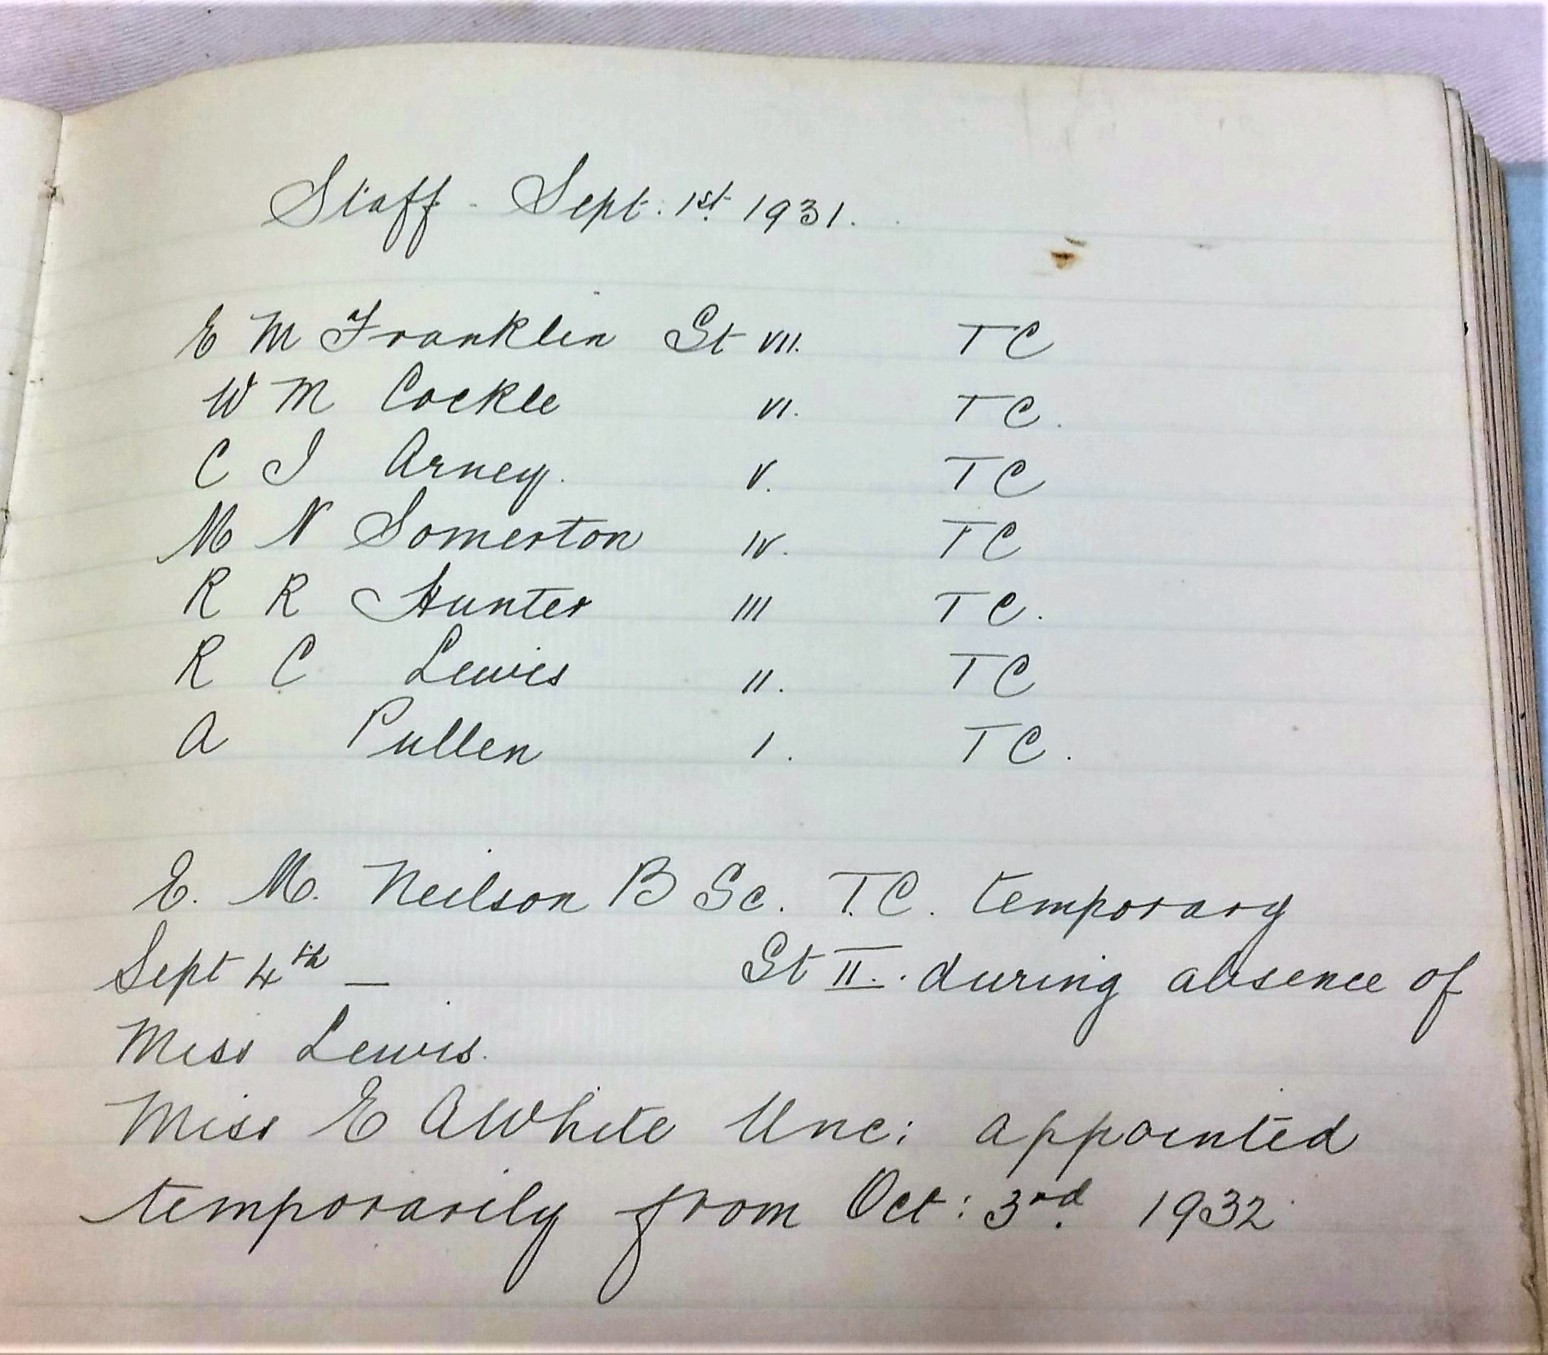 Staff - Sept. 1st 1931.
E M Franklin St VII. TC
W M Cockle VI. TC.
C J Arney. V. TC
M N Somerton IV. TC
R R Hunter III TC.
R C Lewis II. TC
A Pullen I. TC.
E. M. Neilson B Sc. T.C. temporary
Sept 4th — St II. during absence of
Miss Lewis.
Miss E A White Unc: appointed
temporarily from Oct: 3rd. 1932